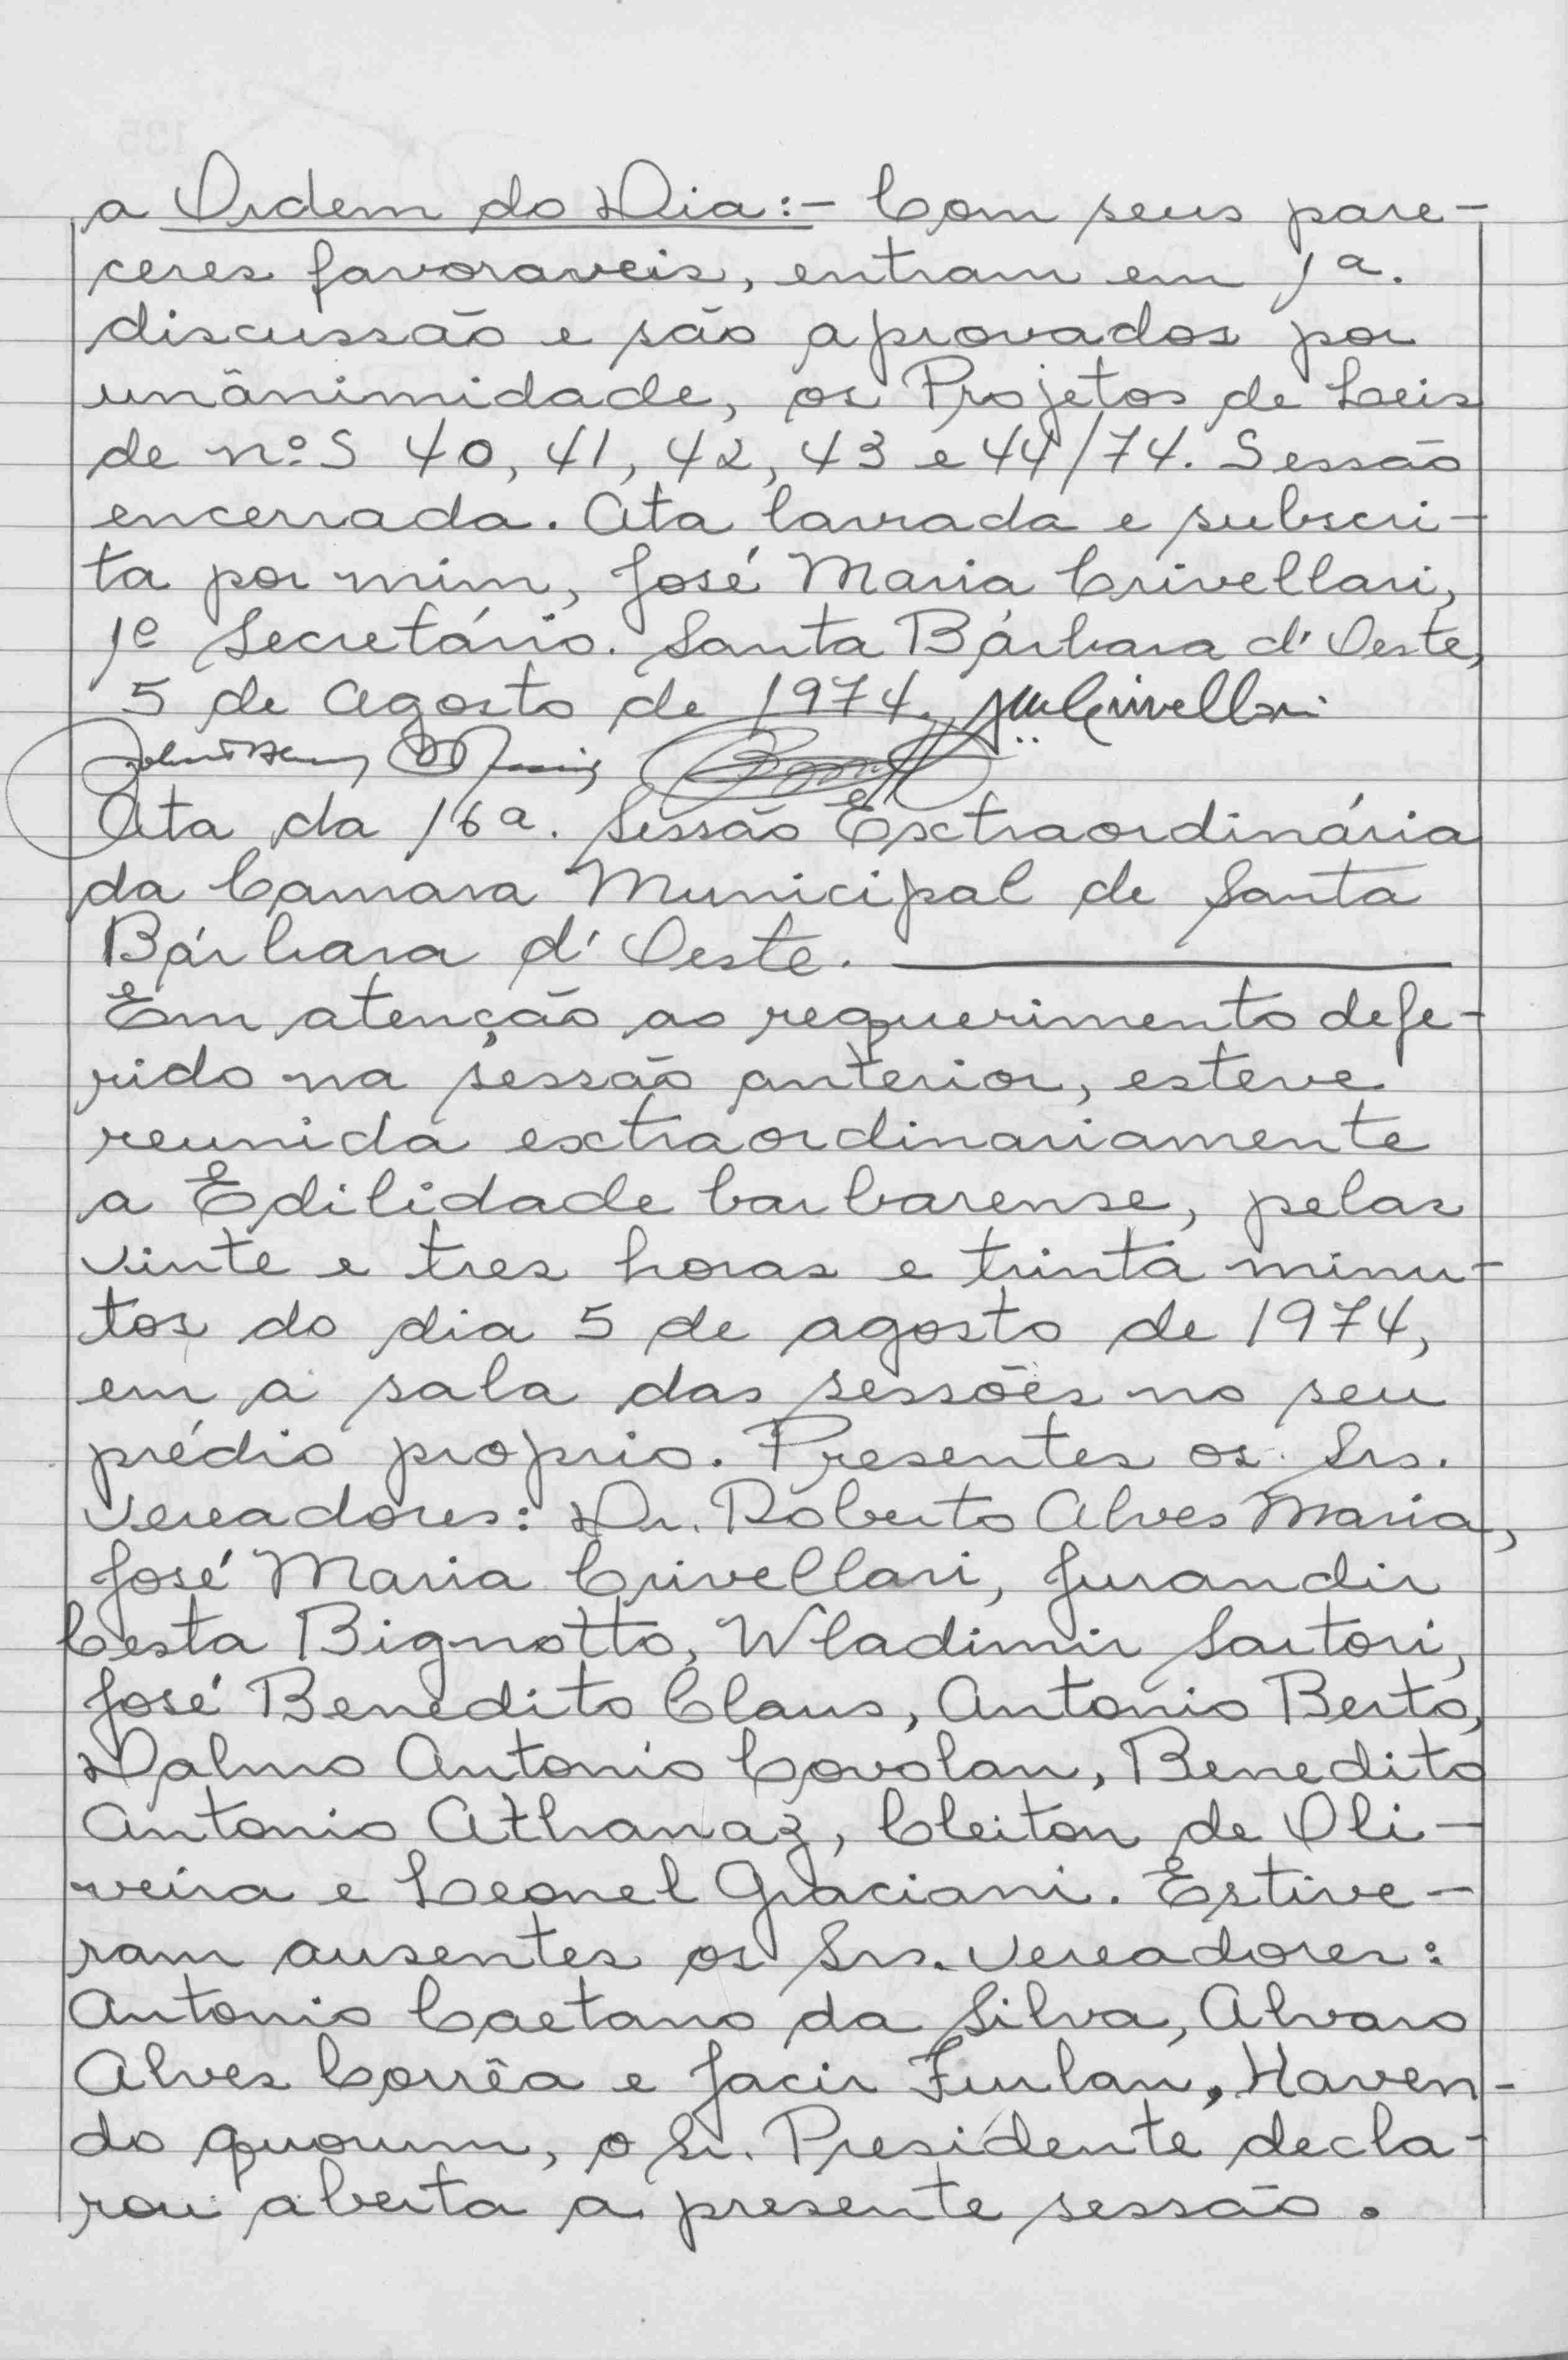 a Ordem do Dia:- Com seus pare-
ceres favoraveis, entram em 1ª.
discussão e são aprovados por
unânimidade, os Projetos de Leis
de nºs 40, 41, 42, 43 e 44/74. Sessão
encerrada. Ata lavrada e subscri-
ta por mim, José Maria Crivellari,
1º Secretário. Santa Bárbara d'Oeste,
5 de Agosto de 1974. JMCrivellari
Ata da 16ª. Sessão Extraordinária
da Camara Municipal de Santa
Bárbara d'Oeste.
Em atenção ao requerimento defe-
rido na sessão anterior, esteve
reunida extraordinariamente
a Edilidade barbarense, pelas
vinte e tres horas e trinta minu-
tos do dia 5 de agosto de 1974,
em a sala das sessões no seu
prédio proprio. Presentes os Srs.
Vereadores: Dr. Roberto Alves Maria,
José Maria Crivellari, Jurandir
Cesta Bignotto, Wladimir Sartori,
José Benedito Claus, Antonio Berto,
Dalmo Antonio Covolan, Benedito
Antonio Athanaz, Cleiton de Oli-
veira e Leonel Graciani. Estive-
ram ausentes os Srs. Vereadores:
Antonio Caetano da Silva, Alvaro
Alves Corrêa e Jacir Furlan, Haven-
do quorum, o Sr. Presidente decla-
rou aberta a presente sessão.